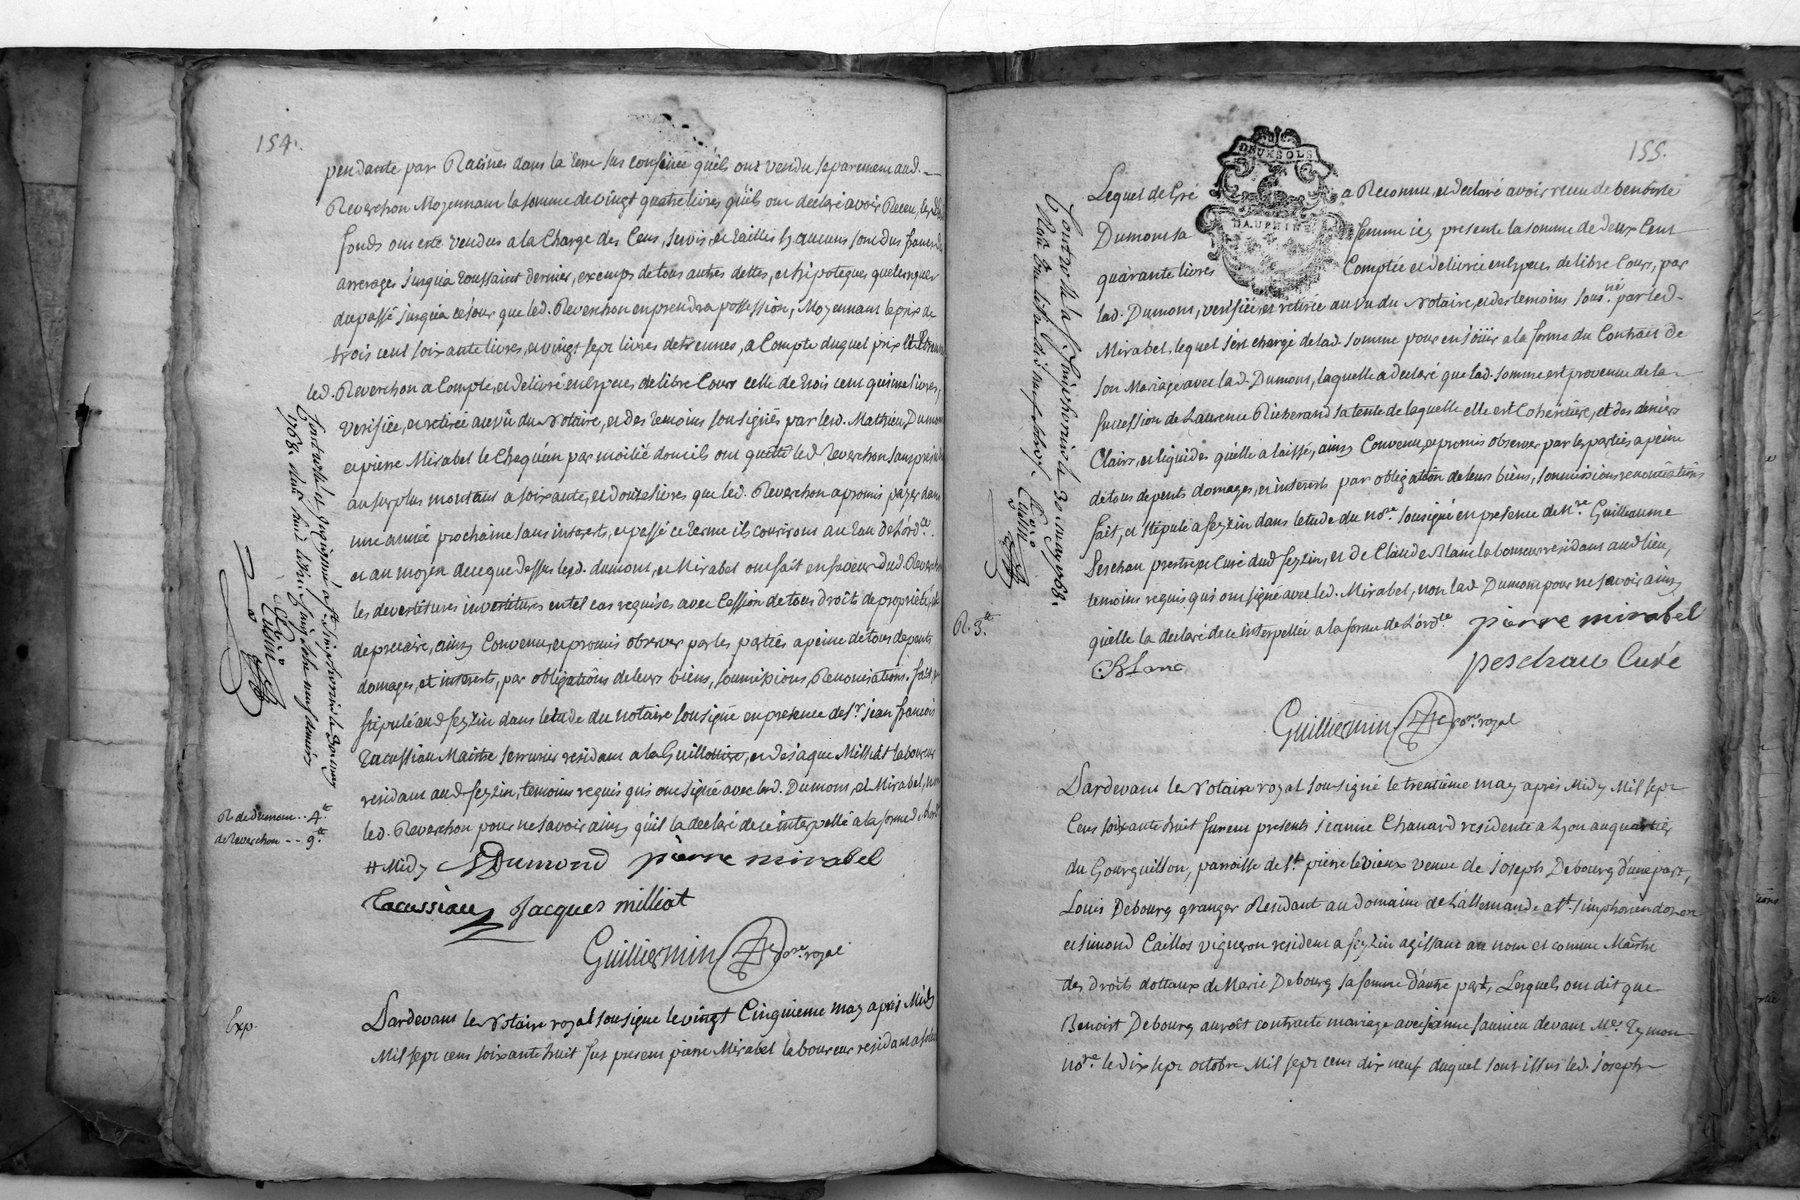 154.
pendante par Racines dans la terre sus confinée qu'ils ont vendu separement aud.
Reverchon Moyennant la somme de vingt quatre livres qu'ils ont declaré avoir Receu, lesd.
fonds ont esté vendus a la Charge des Cens, servis, et tailles sy aucuns sont dus francs de
arrerages jusqu'a toussaint dernier, exempts de tous autres dettes, et hipoteques quelconques
du passé jusqu'a ce jour que led. Reverchon en prendra possession, Moyennant le prix de
trois cent soixante livres, et vingt sept livres detrennes, a Compte duquel prix et Etrennes
led. Reverchon a Compté, et delivré en Especes de libre Cours celle de trois cent quinze livres,
verifiée, et retirée au vû du Notaire, et des temoins sousignés par lesd. Mathieu Dumond
et pierre Mirabel le Chaquun par moitié dont ils ont quitté led. Reverchon sans préjudice
au surplus montant a soixante, et douze livres que led. Reverchon a promis payer dans
une année prochaine sans interets, et passé ce terme ils courront au tau de L'ord.ce
et au moyen de ce que dessus lesd. dumont, et Mirabel ont fait en faveur dud. Reverchon
les devertitures investitures en tel cas requises avec Cession de tous droits de propriété, et
de precaire, ainsy Convenu, et promis observer par les partiés a peine de tous depents
domages, et interets, par obligations de leurs biens, soumissions, Renonciations. fait, et
stipulé aud. feyzin dans letude du notaire sousigné en presence de s.r jean francois
Tacussiau Maitre serrurier residant a la Guillotiere, et de jaque Milliat laboureur
residant aud. feyzin, temoins requis qui ont signé avec lesd. Dumont, et Mirabel, non
led. Reverchon pour ne savoir ainsy qu'il la declaré de ce interpellé a la forme de L'ord.ce
# Midy MDumond pierre mirabel
Tacussiau Jacques milliat
Guilliermin no.re royal
R. de Dumont .. 4.tt
de Reverchon .. 9.tt
Exp.
Pardevant le Notaire royal sousigné le vingt Cinquieme may après Midy
Mil sept cens soixante huit fut present pierre Mirabel laboureur residant a
155.
DEUX SOLS
DAUPHINE
Lequel de Gré a Reconnu, et declaré avoir receu de benoite
Dumont sa femme icy presente la somme de deux Cent
quarante livres Comptée et delivrée en Especes de libre Cours, par
lad. Dumont, verifiée, et retirée au vu du Notaire, et des temoins sous.nés par led.
Mirabel, lequel s'est chargé de lad. somme pour en jouïr a la forme du Contrait de
son Mariage avec lad. Dumont, laquelle a declaré que lad. somme est provenue de la
succession de Laurence Richerand sa tente de laquelle elle est Cohéritiere, et des deniers
Clairs, et liquides quelle a laissé, ainsy Convenu, et promis observer par les parties a peine
de tous depents domages, et interets par obligation de leurs biens, soumissions renonciations
fait, et stipulé a feyzin dans letude du no.re sousigné en presence de m.re Guilleaume
Peschau prestre et Curé dud. feyzin, et de Claude Blanc laboureur residant aud. lieu,
temoins requis qui ont signé avec led. Mirabel, non lad. Dumont pour ne savoir ainsy
quelle la declaré de ce interpellée a la forme de L'ord.ce pierre mirabel
C. Blanc peschau Curé
Guilliermin no.re royal
R. 3.tt
Pardevant le Notaire royal sousigné le trentieme may après Midy Mil sept
Cens soixante huit furent presents jeanne Chanard residente a Lyon au quartier
du Gourguillon, parroisse de s.t pierre le vieux veuve de joseph Debourg d'une part,
Louis Debourg granger Residant au domaine de Lallemande a s.t simphorien dozon
et simond Caillos vigneron resident a feyzin agissant au nom et comme Maitre
des droits dottaux de Marie Debourg sa femme d'autre part, Lesquels ont dit que
Benoist Debourg auroit contracté mariage avec jeanne saunieu devant M.e Eymon
no.re le dix sept octobre Mil sept cens dix neuf duquel sont issus led. joseph